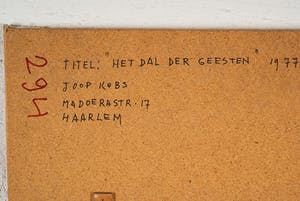 TITEL: "HET DAL DER GEESTEN" 1977
JOOP KOBS
MADOERASTR. 17
HAARLEM
294